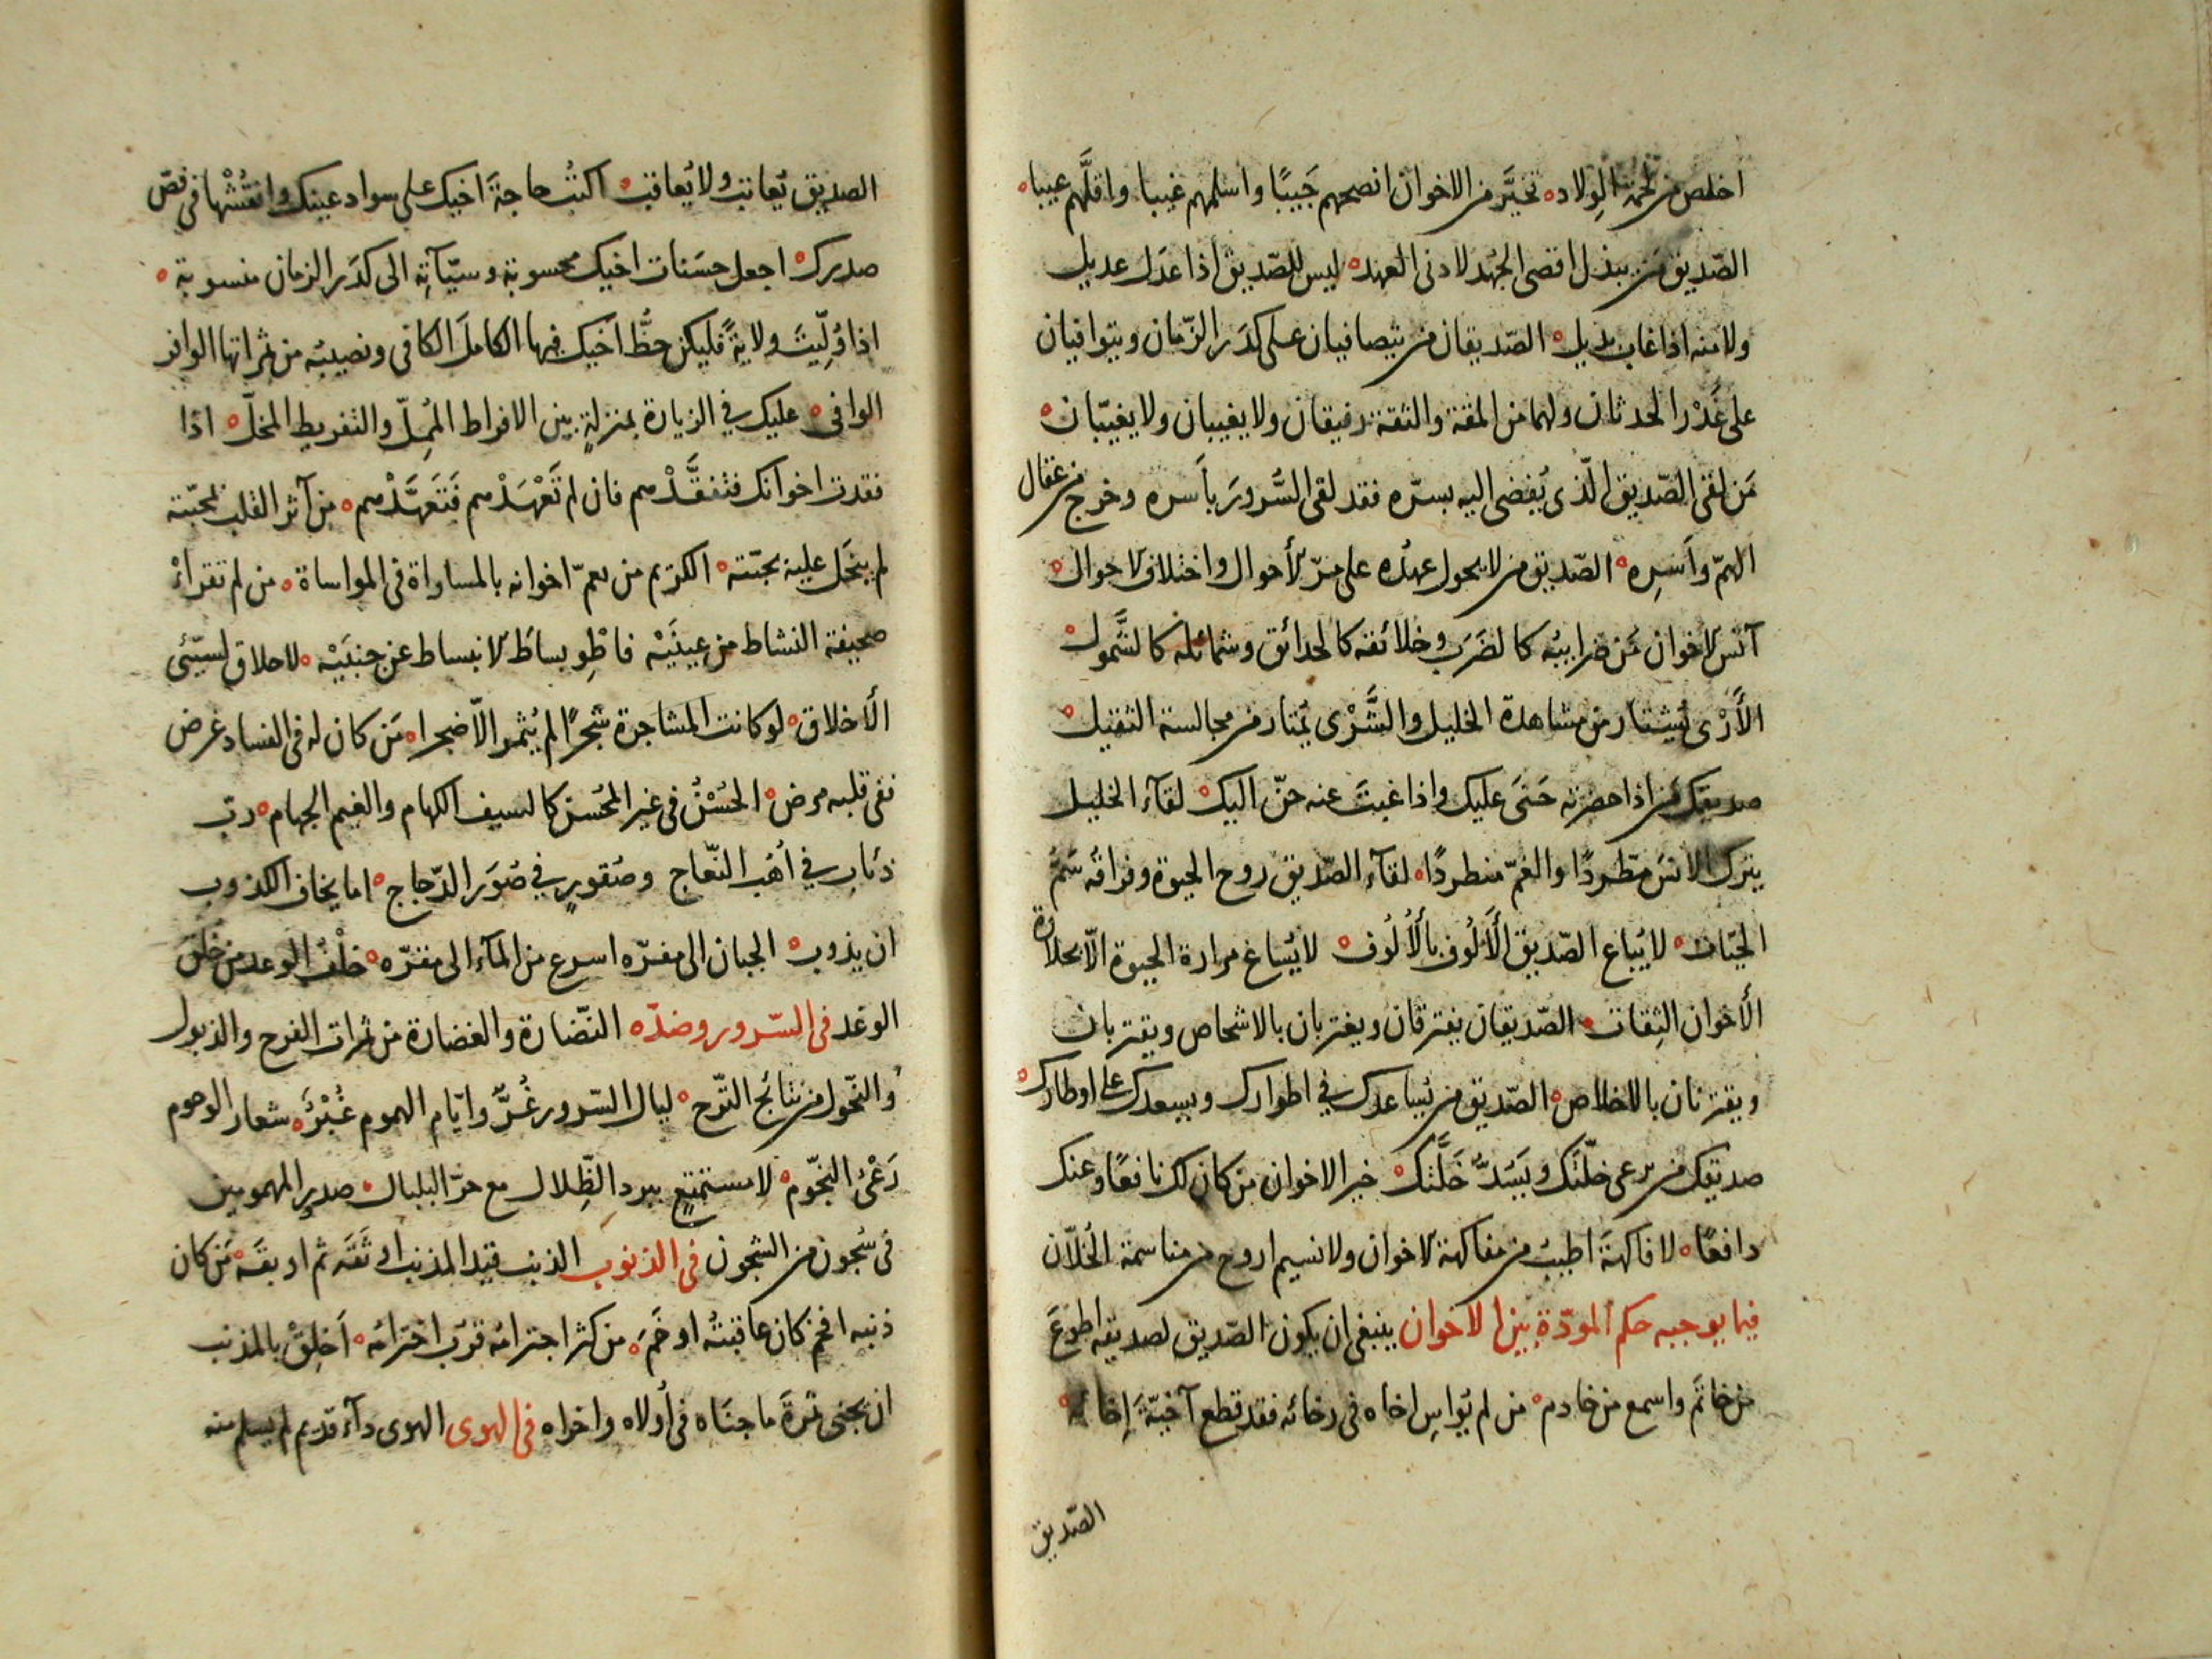 اخلص من لحمة الولاد ° تخيّر من الاخوان انصحهم جَيبًا واسلمهم غيبا واقلّهم عيبا °
الصّديق من يبذل اقصى الجُهد لادنى العهد ° ليس للصّديق اذا عدَل عديل
ولا منه اذا غاب بديل ° الصّديقان من يتصافيان على كدَر الزّمان ويتوافيان
على غَدْر الحدثان ولهما من المقة والثقة رفيقان ولا يغيبان ولا يغيّبان °
مَن لقى الصّديق الّذى يُفضى اليه بسرّه فقد لقى السُّرورَ بأَسره وخرج من عقال
الهمّ وأَسْرِه ° الصّديق من لا يحول عهدُه على مرّ الأحوال واختلاف الاحوال °
آنس الاخوان مَن ضرايبُه كالضرَب وخلائقه كالحدائق وشمائله كالشَّمول °
الأَرْى يُشتار من مشاهدة الخليل والشَّرْى يُمتار من مجالسة الثقيل °
صديقك من اذا حضرته حَنَى عليك واذا غبتَ عنه حنّ اليك ° لقآء الخليل
يترك الانسَ مطّردًا والغمّ منطردًا ° لقآء الصّديق روح الحيوة وفراقه سَمّ
الحيّات ° لا يُباع الصّديق الأَلُوف بالأُلُوف ° لا يُساغ مرارة الحيوة الّا بحلاوة
الأخوان الثِقات ° الصّديقان يفترقان ويغتربان بالاشخاص ويقتربان
ويقترنان بالاخلاص ° الصّديق من يُساعدك في اطوارك ويسعدك على اوطارك °
صديقك من يرعى خلّتَك ويَسُدُّ خَلَّتك ° خير الاخوان من كان لك نافعًا وعنك
دافعًا ° لا فاكهةَ اطيبُ من مفاكهة الاخوان ولا نسيم اروح من مناسمة الخلّان
فيما يوجبه حكم المودّة بين الاخوان ينبغى ان يكون الصّديق لصديقه اطوعَ
من خاتَم واسمع من خادم ° من لم يُواسِ اخاه فى رخائه فقد قطع آخيّةَ إخائه °
الصّديق
الصديق يُعاتِب ولا يُعاقِب ° اكتُب حاجةَ اخيك على سواد عينك وانقُشْها فى فصّ
صدرك ° اجعل حسَنات اخيك محسوبة وسيّآتِه الى كدَر الزمان منسوبة °
اذا وُلّيتَ ولايةً فليكن حظُّ اخيك فيها الكاملَ الكافى ونصيبُه من ثمراتها الوافر
الوافى ° عليك في الزيارة بمنزلةٍ بين الافراط المُمِلّ والتفريط المخلّ ° اذا
فقدت اخوانك فتفقَّدْهم فان لم تَعْهَدْهم فَتَعهَّدْهم ° من آثر القلب بمحبّته
لم يبخَل عليه بحبّته ° الكريم من يعمّ اخوانه بالمساواة فى المواساة ° من لم تقرأْ
صحيفة النشاط من عينَيْه فاطْوِ بساطَ الانبساط عن جنبَيْه ° لا خلاق لسيّئى
الأخلاق ° لو كانت المشاجرة شجرًا لم يُثمر الّا ضجرا ° مَن كان له فى الفساد غرض
ففى قلبه مرض ° الحُسْنُ فى غير المحُسن كالسيف الكهام والغيم الجهام ° ربّ
ذئابٍ في أُهُب النّعاج وصُقورٍ في صُوَر الدّجاج ° اما يخاف الكذوب
ان يذوب ° الجبان الى مفرّه اسرع من المآء الى مقرّه ° خُلْفُ الوعد من خلق
الوغد فى السّرور وضدّه النّضارة والغضارة من ثمرات الفرح والذبول
والنّحول من نتائج التّرح ° ليال السّرور غُرٌّ وايّام الهموم غُبْرٌ ° شعار الوجوم
رَعْىُ النجّوم ° لا مستمتِع ببردِ الظِّلال مع حرّ البلبال ° صدر المهمومين
فى سُجون من الشجون فى الذنوب الذنب قيد المذنب اوثَقَه ثم اوبقَه ° مَن كان
ذنبه افخم كان عاقبتُه اوخَمَ ° من كثر اجترامُه قرب اخترامُه ° اَخلِقْ بالمذنب
ان يجنى ثمرةَ ما جنَاه فى اُولاه واخراه فى الهوى الهوى دآء قديم لم يسلم منه